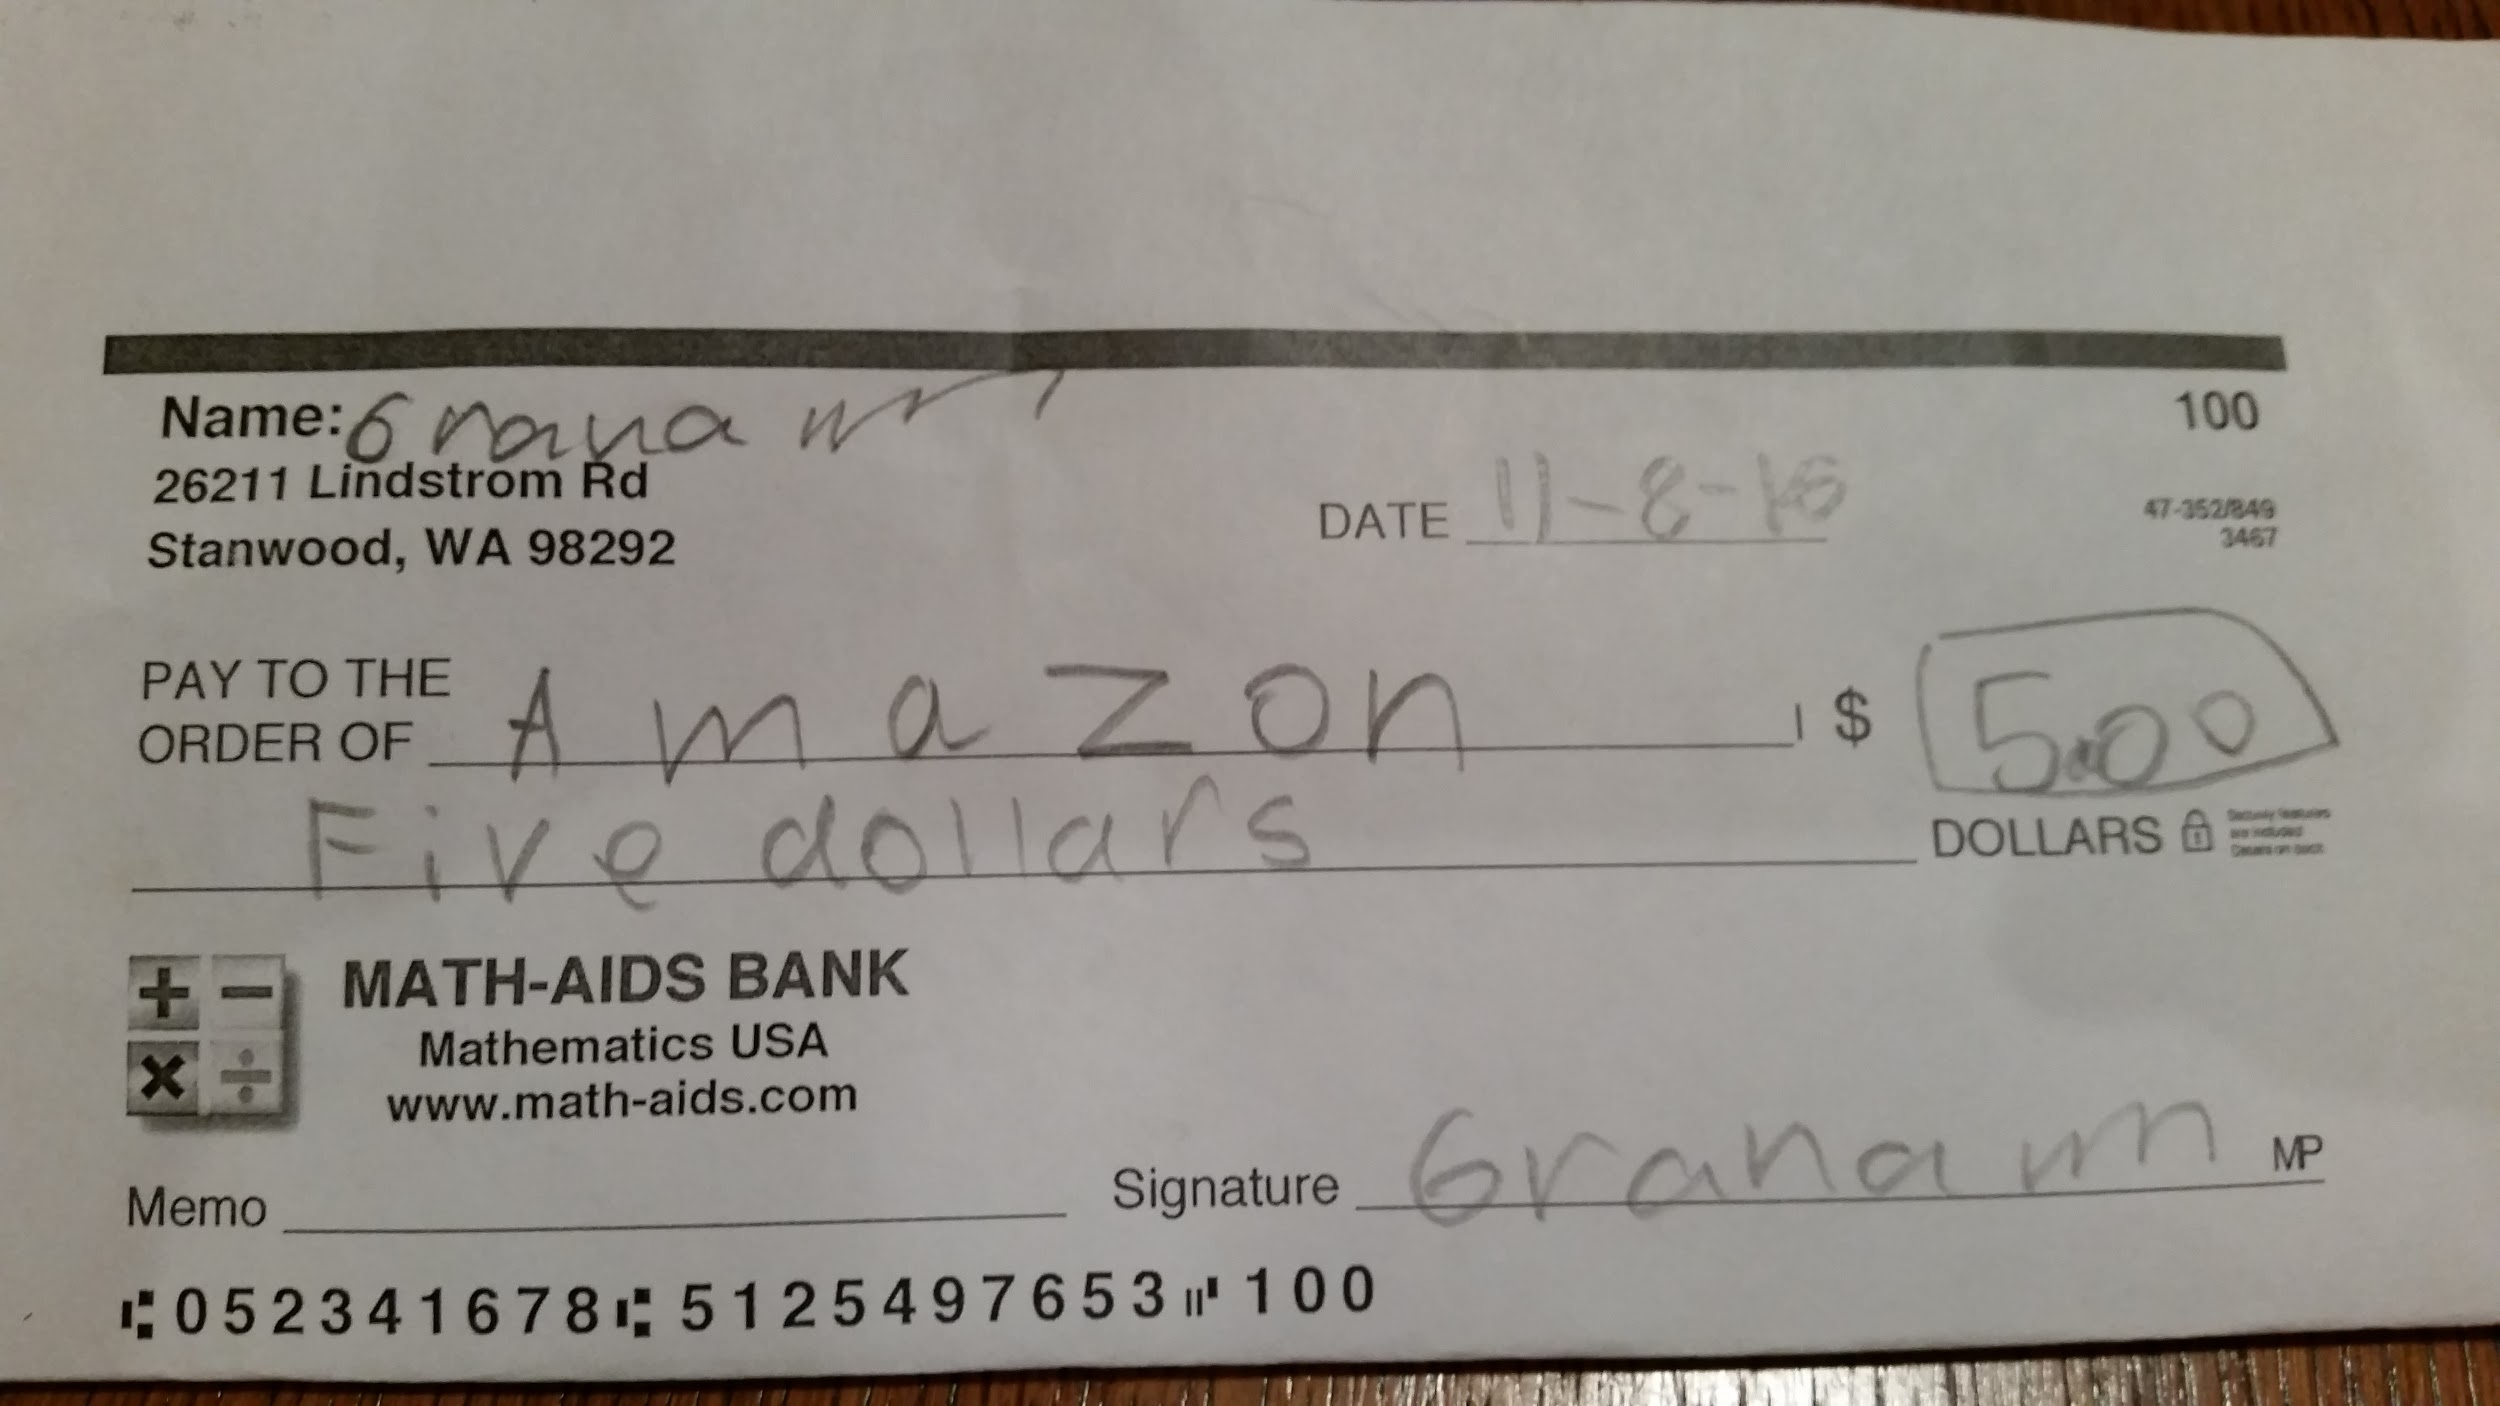 Name: Granam
100
26211 Lindstrom Rd
DATE 11-8-16
47-352/849
3467
Stanwood, WA 98292
PAY TO THE
ORDER OF Amazon $ 5.00
Five dollars DOLLARS
Security features
are included
Details on back
MATH-AIDS BANK
Mathematics USA
www.math-aids.com
Memo Signature Granam MP
⑆052341678⑆ 5125497653⑈ 100